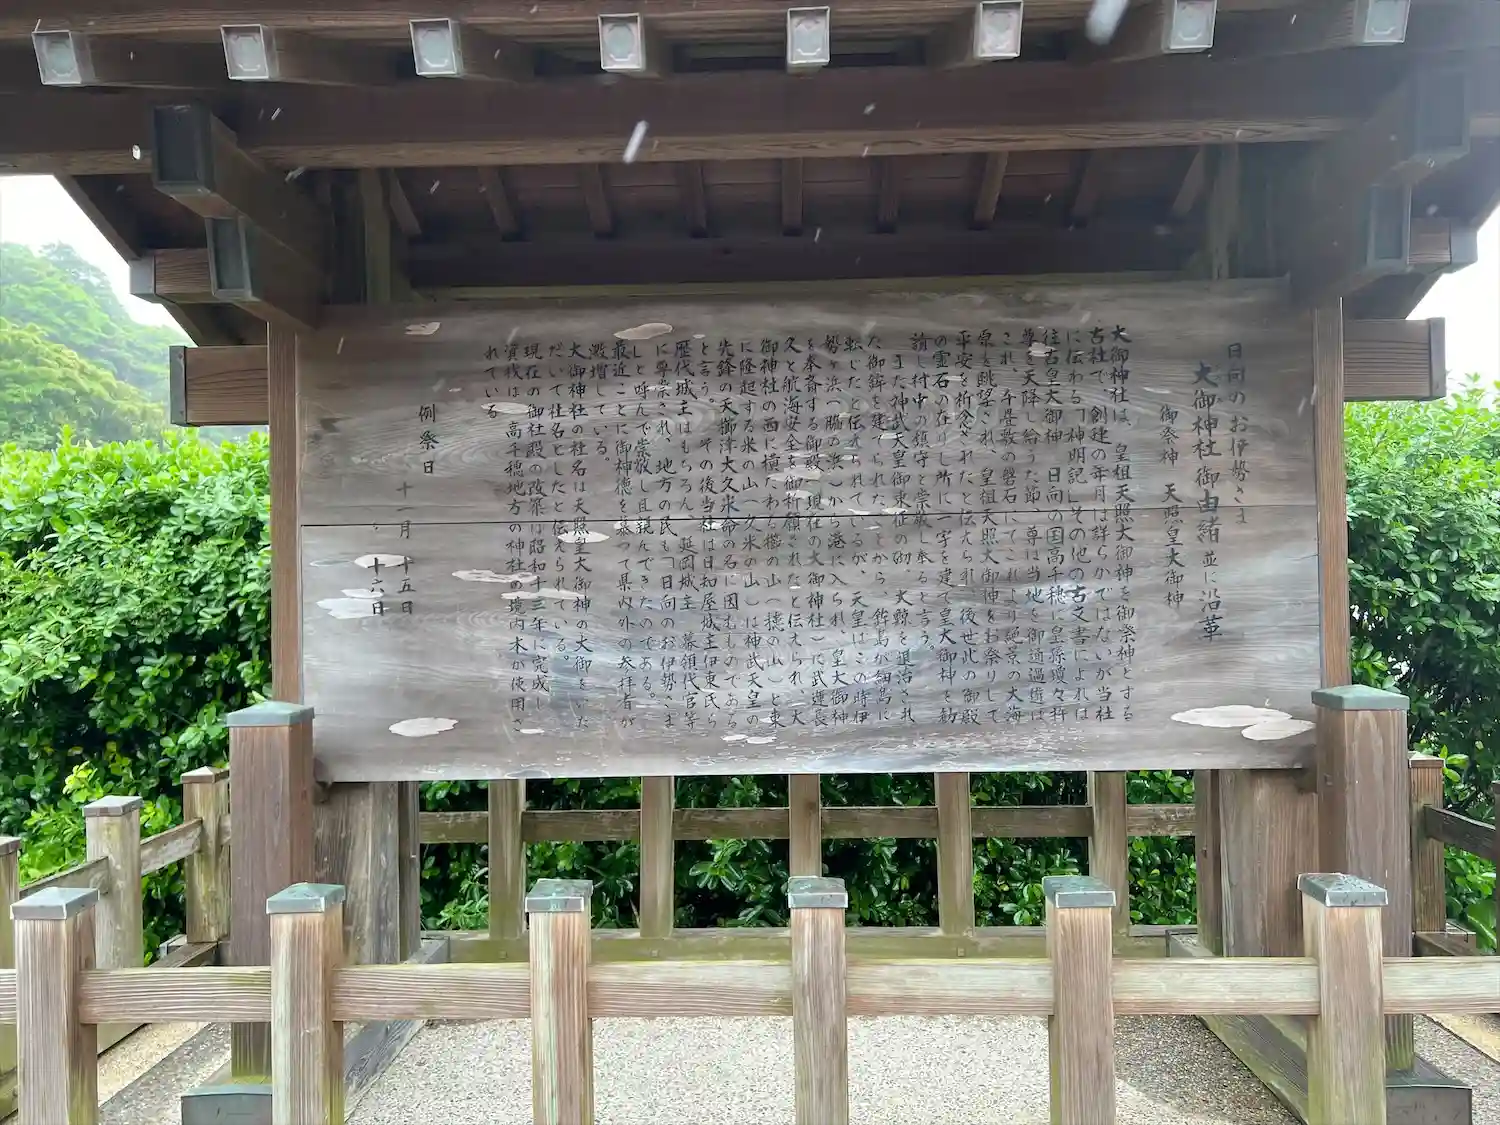 日向のお伊勢さま
大御神社御由緒並に沿革
御祭神 天照皇大御神
大御神社は、皇祖天照大御神を御祭神とする
古社で、創建の年月は詳らかではないが当社
に伝わる「神明記」その他の古文書によれば
往古皇大御神、日向の国高千穂に皇孫瓊々杵
尊を天降し給うた節、尊は当地を御通過遊ば
これ、千畳敷の磐石にてこれより絶景の大海
原を眺望され、皇祖天照大御神をお祭りして
平安を祈念されたと伝えられ、後世此の御殿
の霊石の在りし所に一宇を建て皇大御神を勧
請し村中の鎮守と崇敬し奉ると言う。
また神武天皇御東征の砌、大鯨を退治され
た御鉾を建てられたことから、鉾島が細島に
転じたと伝えられているが、天皇はこの時伊
勢ヶ浜(脇の浜)から港に入られ、皇大御神
を奉斎する御殿(現在の大御神社)に武運長
久と航海安全を御祈願されたと伝えられ、大
御神社の西に横たわる櫛の山(穂の山)と東
に隆起する米の山(久米の山)は神武天皇の
先鋒の天櫛津大久米命の名に因むものである
と言う。その後当社は日知屋城主伊東氏ら
歴代城主はもちろん、延岡城主、幕領代官等
に尊崇され、地方の民も「日向のお伊勢さま
」と呼んで崇敬し且親んできたのである。
最近ことに御神徳を慕って県内外の参拝者が
激増している。
大御神社の社名は天照皇大御神の大御をいた
だいて社名としたと伝えられている。
現在の御社殿の改築は昭和十三年に完成し
資材は、高千穂地方の神社の境内木が使用さ
れている
例祭日 十一月 十五日
〃 十六日